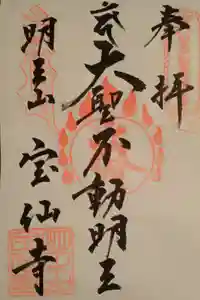 奉拝
大聖不動明王
明王山
宝仙寺